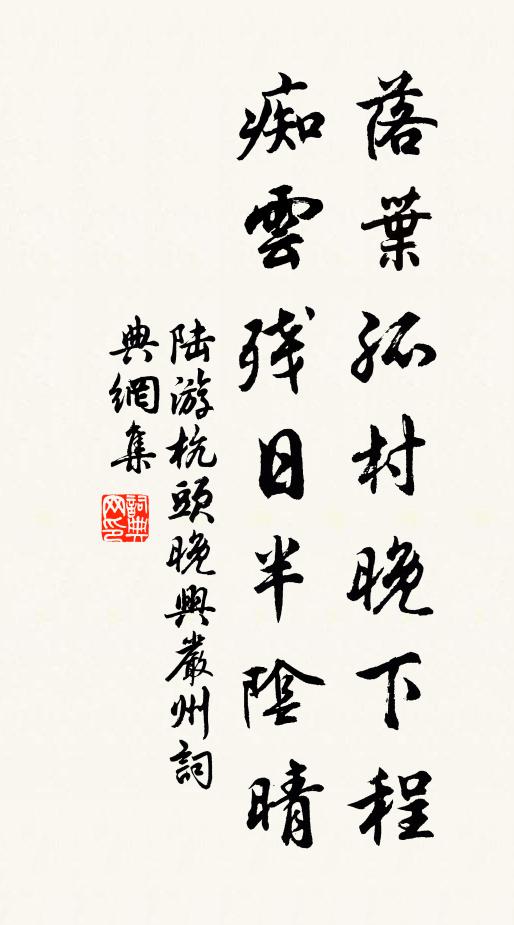 落葉孤村晚下程
痴雲残日半陰晴
陆游杭頭晚興嚴州詞
典網集
詞典网印